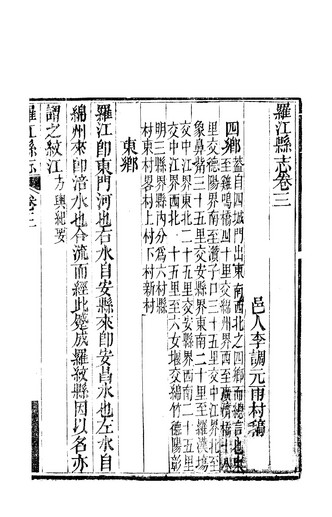 羅江縣志卷三
邑人李調元雨村稿
四鄉蓋自四城門出東南西北之四鄉而總言也東
至雞鳴橋四十里交綿州界西至廣濟橋十八
里交德陽界南至瀆子口三十五里交
象鼻嘴三十五里交安縣界東南二十里至羅漢場
交中江界東北二十五里交安縣界西南二十五里
交中江界西北二十五里至六女堰交綿竹德陽彰
明三縣界縣內分為六村縣
村東村畧村上村下村新村
東鄉
羅江卽東門河也右水自安縣來卽安昌水也左水自
綿州來卽涪水也合流而經此蹙成羅紋縣因以名亦
謂之紋江方輿紀要
羅江縣志 卷三